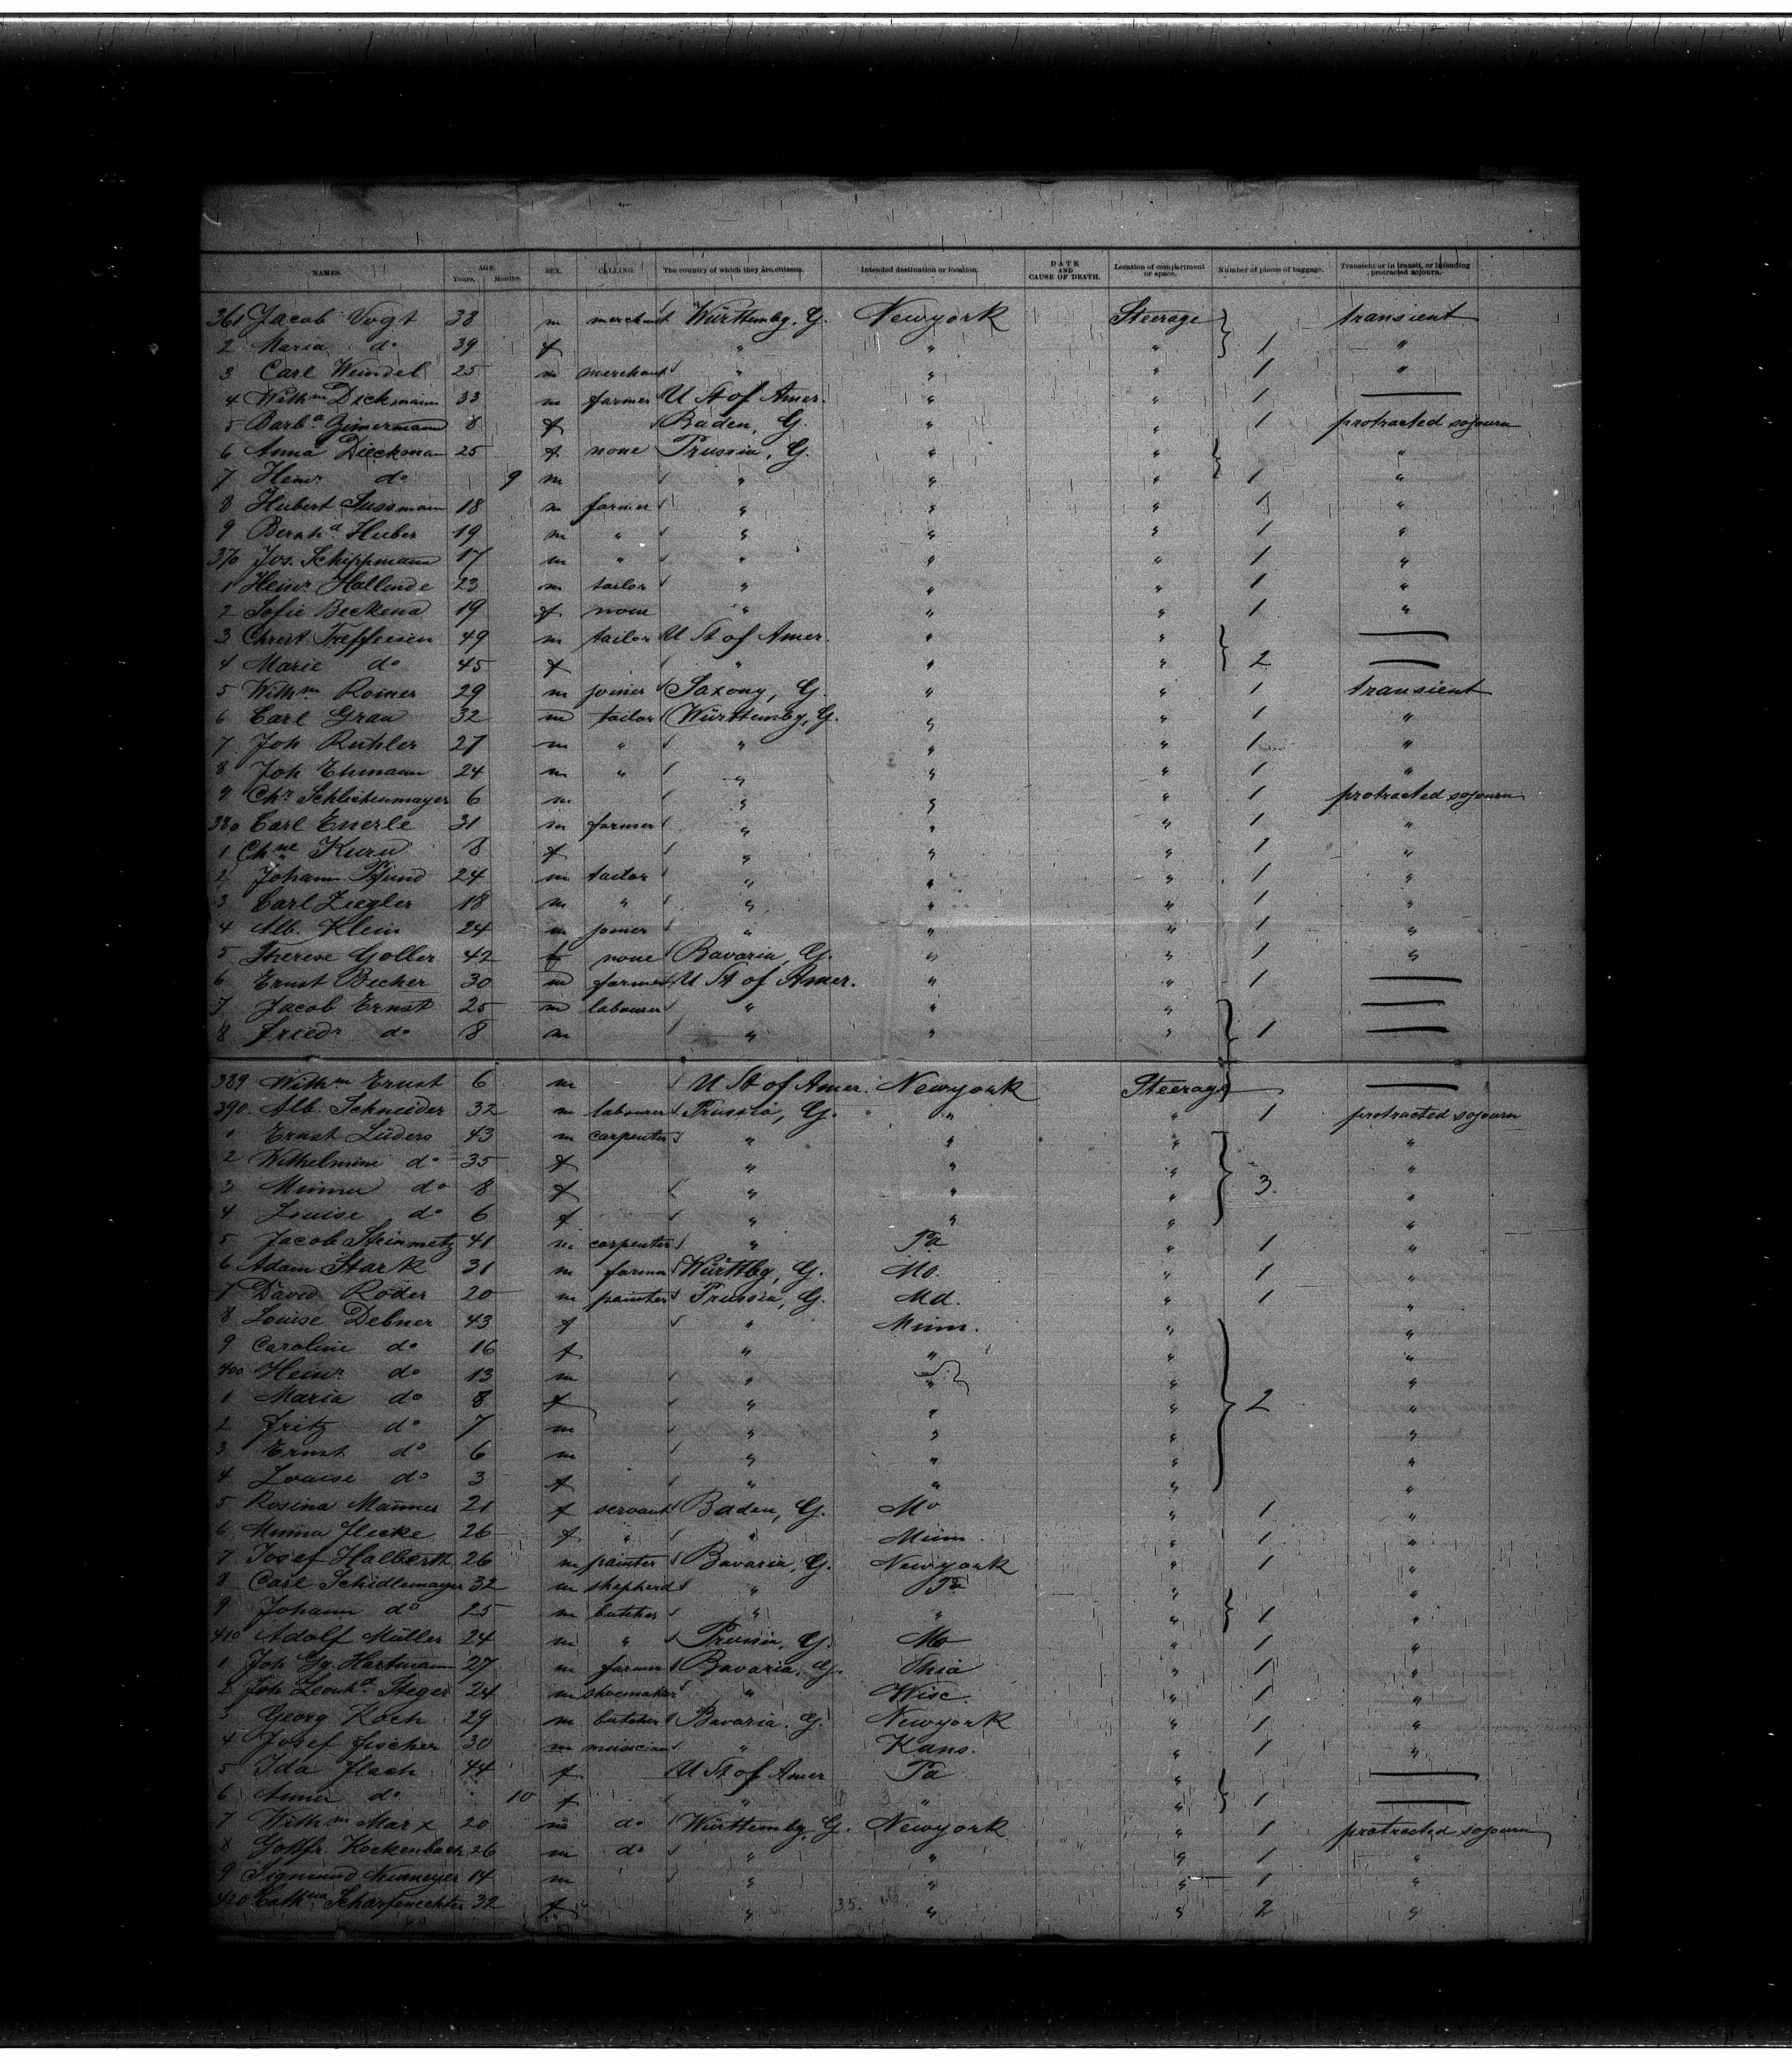 NAMES. AGE Years. Months. SEX. CALLING. The country of which they are citizens. Intended destination or location. DATE AND CAUSE OF DEATH. Location of compartment or space. Number of pieces of baggage. Transient or in transit, or intending protracted sojourn.
361 Jacob Vogt 38 m merchant Württembg, G. Newyork Steerage transient
2 Maria do 39 f " " " 1 "
3 Carl Weindel 25 m merchant " " " 1 "
4 Wilhm Dickmann 33 m farmer U St of Amer. " " 1 —
5 Barba Zimermann 8 f Baden, G. " " 1 protracted sojourn
6 Anna Dieckman 25 f none Prussia, G. " " "
7 Heinr do 9 m " " " 1 "
8 Hubert Sussmann 18 m farmer " " " 1 "
9 Bernhd Huber 19 m " " " " 1 "
370 Jos. Schippmann 17 m " " " " 1 "
1 Heinr Hallinde 23 m tailor " " " 1 "
2 Sofie Beckena 19 f none " " " 1 "
3 Christ 49 m tailor U St of Amer. " " —
4 Marie do 45 f " " " 2 —
5 Wilhm Roiner 29 m joiner Saxony, G. " " 1 transient
6 Carl Grau 32 m tailor Württembg, G. " " 1 "
7 Joh Ruhler 27 m " " " " 1 "
8 Joh Ehmann 24 m " " " " 1 "
9 Chr Schlichenmayer 6 m " " " 1 protracted sojourn
380 Carl Enerle 31 m farmer " " " 1 "
1 Chne Kurd 8 f " " " 1 "
2 Johann Pfund 24 m tailor " " " 1 "
3 Carl Ziegler 18 m " " " " 1 "
4 Alb. Klein 24 m joiner " " " 1 "
5 Therese Goller 42 f none Bavaria, G. " " 1 "
6 Ernst Becher 30 m farmer U St of Amer. " " 1 —
7 Jacob Ernst 25 m labourer " " " —
8 Friedr do 8 m " " " 1 —
389 Wilhm Ernst 6 m U St of Amer. Newyork Steerage —
390 Alb. Schneider 32 m labourer Prussia, G. " " 1 protracted sojourn
1 Ernst Lüders 43 m carpenter " " " "
2 Wilhelmine do 35 f " " " "
3 Minna do 8 f " " " 3 "
4 Louise do 6 f " " " "
5 Jacob Steinmetz 41 m carpenter " Pa " 1 "
6 Adam Stark 31 m farmer Württbg, G. Mo. " 1 "
7 David Röder 20 m painter Prussia, G. Md. " 1 "
8 Louise Debner 43 f " Minn. " "
9 Caroline do 16 f " " " "
400 Heinr do 13 m " " " "
1 Maria do 8 f " " " 2 "
2 Fritz do 7 m " " " "
3 Ernst do 6 m " " " "
4 Louise do 3 f " " " "
5 Rosina Manner 21 f servant Baden, G. Mo " 1 "
6 Minna Flecke 26 f " " Minn " 1 "
7 Josef Halberth 26 m painter Bavaria, G. Newyork " 1 "
8 Carl Schidlemayer 32 m shepherd " Pa " "
9 Johann do 25 m butcher " " " 1 "
410 Adolf Müller 24 m " Prussia, G. Mo " 1 "
1 Joh Gg. Hartmann 27 m farmer Bavaria, G. Ohio " 1 "
2 Joh Leonhd Steger 24 m shoemaker " Wisc. " 1 "
3 Georg Koch 29 m butcher Bavaria. G. Newyork " 1 "
4 Josef Fischer 30 m musician " Kans. " 1 "
5 Ida Flach 44 f U St of Amer Pa " —
6 Anna do 10 f " " " 1 —
7 Wilhm Marx 20 m do Württembg, G. Newyork " 1 protracted sojourn
8 Gottfr. Kockenbach 26 m do " " " 1 "
9 Sigmund Niemeyer 14 m " " " 1 "
420 Cathna Scharfenichter 32 f " " " 2 "